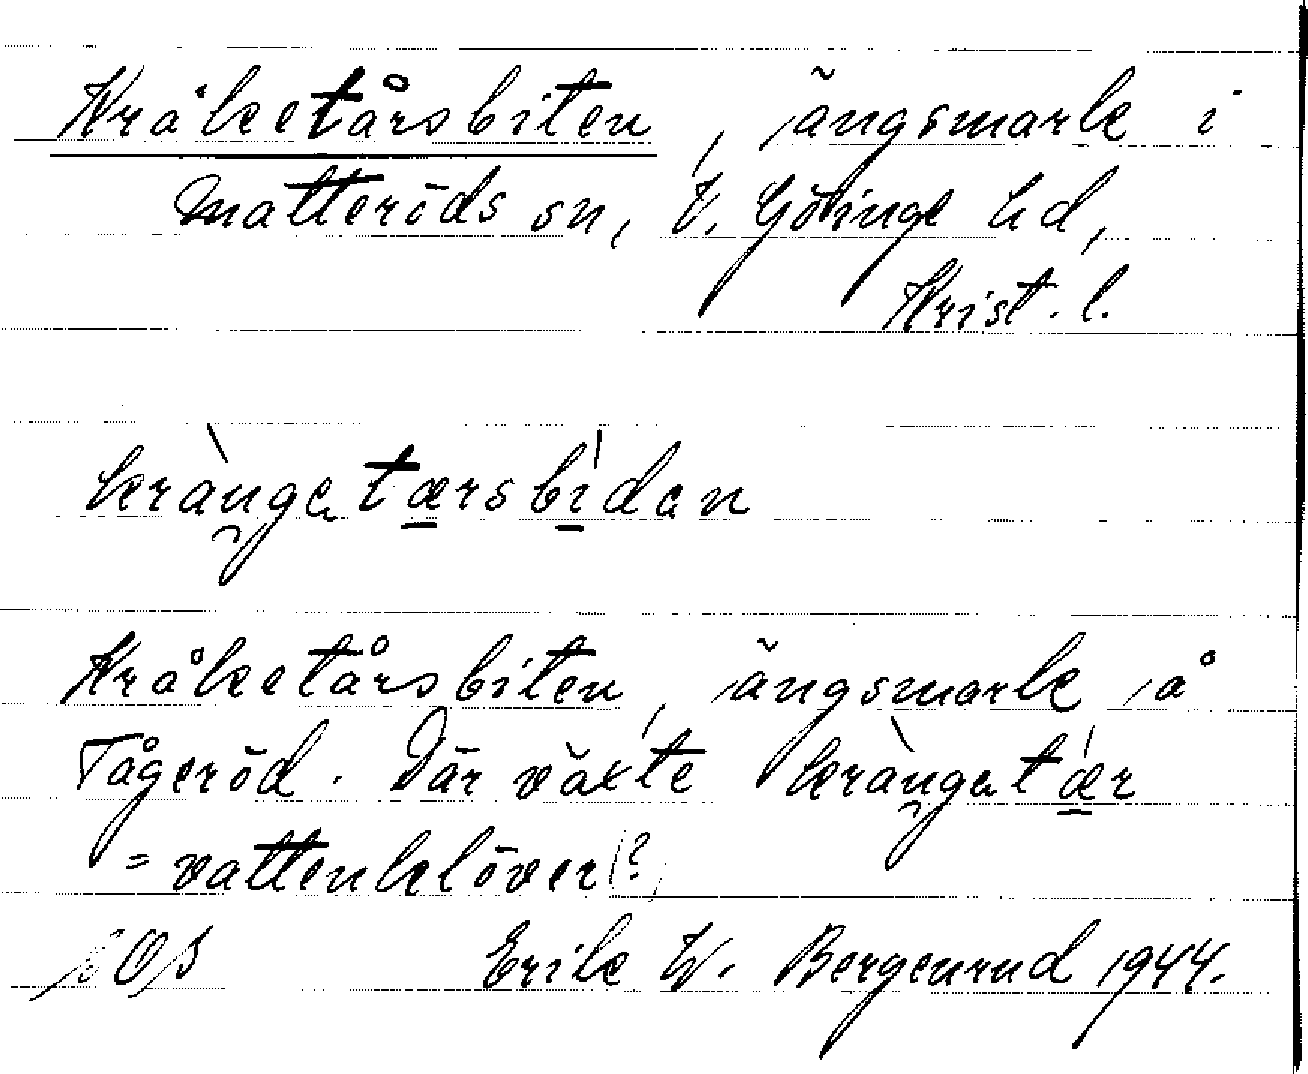 Kråketårsbiten, ängsmark i
Matteröds sn, V. Göinge hd,
Krist. l.
kràŋgatærsbìdan
Kråketårsbiten, ängsmark å
Tågeröd. Där växte kràŋgatær
= vattenklöver (?)
Erik W. Bergenrud 1944.